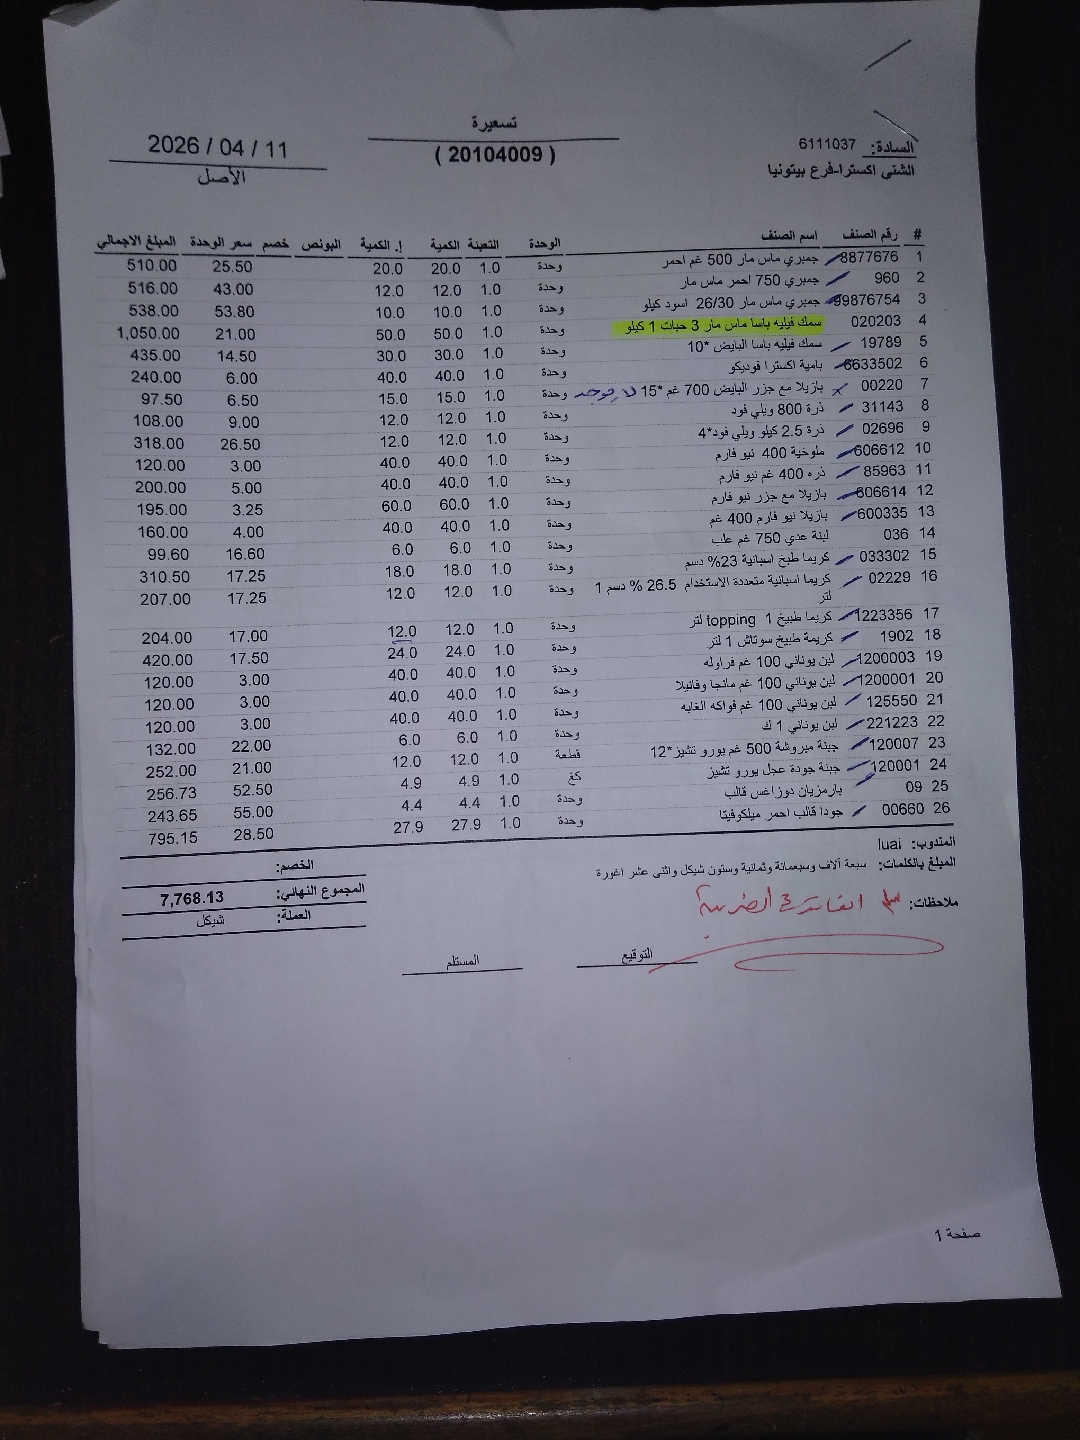 تسعيرة
( 20104009 )
2026 / 04 / 11
الأصل
السادة: 6111037
الشني اكسترا-فرع بيتونيا
# رقم الصنف اسم الصنف الوحدة التعبئة الكمية إ. الكمية البونص خصم سعر الوحدة المبلغ الاجمالي
1 8877676 جمبري ماس مار 500 غم احمر وحدة 1.0 20.0 20.0 25.50 510.00
2 960 جمبري 750 احمر ماس مار وحدة 1.0 12.0 12.0 43.00 516.00
3 99876754 جمبري ماس مار 26/30 اسود كيلو وحدة 1.0 10.0 10.0 53.80 538.00
4 020203 سمك فيليه باسا ماس مار 3 حبات 1 كيلو وحدة 1.0 50.0 50.0 21.00 1,050.00
5 19789 سمك فيليه باسا البايض *10 وحدة 1.0 30.0 30.0 14.50 435.00
6 6633502 بامية اكسترا فوديكو وحدة 1.0 40.0 40.0 6.00 240.00
7 00220 بازيلا مع جزر البايض 700 غم *15 لا يوجد وحدة 1.0 15.0 15.0 6.50 97.50
8 31143 ذرة 800 ويلي فود وحدة 1.0 12.0 12.0 9.00 108.00
9 02696 ذرة 2.5 كيلو ويلي فود*4 وحدة 1.0 12.0 12.0 26.50 318.00
10 606612 ملوخية 400 نيو فارم وحدة 1.0 40.0 40.0 3.00 120.00
11 85963 ذره 400 غم نيو فارم وحدة 1.0 40.0 40.0 5.00 200.00
12 606614 بازيلا مع جزر نيو فارم وحدة 1.0 60.0 60.0 3.25 195.00
13 600335 بازيلا نيو فارم 400 غم وحدة 1.0 40.0 40.0 4.00 160.00
14 036 لبنة عدي 750 غم علب وحدة 1.0 6.0 6.0 16.60 99.60
15 033302 كريما طبخ اسبانية 23% دسم وحدة 1.0 18.0 18.0 17.25 310.50
16 02229 كريما اسبانية متعددة الاستخدام 26.5 % دسم 1 وحدة 1.0 12.0 12.0 17.25 207.00
لتر
17 1223356 كريما طبيخ topping 1 لتر وحدة 1.0 12.0 12.0 17.00 204.00
18 1902 كريمة طبيخ سوتاش 1 لتر وحدة 1.0 24.0 24.0 17.50 420.00
19 1200003 لبن يوناني 100 غم فراوله وحدة 1.0 40.0 40.0 3.00 120.00
20 1200001 لبن يوناني 100 غم مانجا وفانيلا وحدة 1.0 40.0 40.0 3.00 120.00
21 125550 لبن يوناني 100 غم فواكه الغابه وحدة 1.0 40.0 40.0 3.00 120.00
22 221223 لبن يوناني 1 ك وحدة 1.0 6.0 6.0 22.00 132.00
23 120007 جبنة مبروشة 500 غم يورو تشيز*12 قطعة 1.0 12.0 12.0 21.00 252.00
24 120001 جبنة جودة عجل يورو تشيز كغ 1.0 4.9 4.9 52.50 256.73
25 09 بارمزيان دوزاغس قالب وحدة 1.0 4.4 4.4 55.00 243.65
26 00660 جودا قالب احمر ميلكوفيتا وحدة 1.0 27.9 27.9 28.50 795.15
المندوب: luai
المبلغ بالكلمات: سبعة آلاف وسبعمائة وثمانية وستون شيكل واثنى عشر اغورة
ملاحظات:
الخصم:
المجموع النهائي: 7,768.13
العملة: شيكل
التوقيع
المستلم
صفحة 1